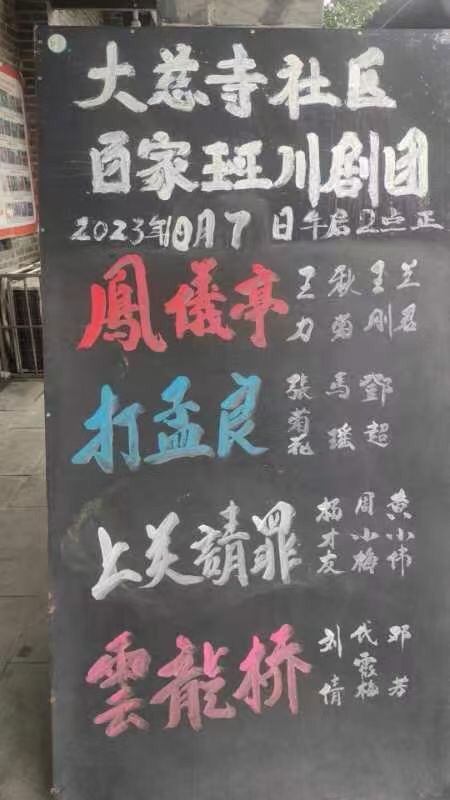 大慈寺社区
百家班川剧团
2023年10月7日午后2点正
鳳儀亭 王力 秋菊 王刚 兰君
打孟良 张菊花 馬瑶 鄧超
上关請罪 杨才友 周小梅 黄小伟
雲龍桥 刘倩 代霞梅 邓芳